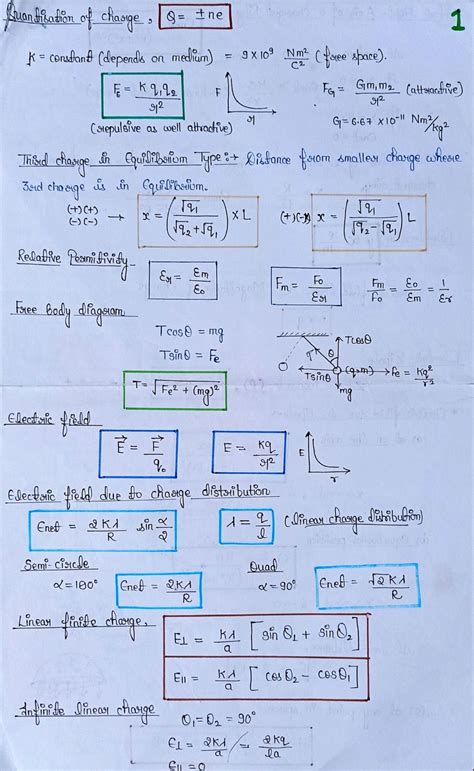 Quantisation of charge, Q = ±ne
1
K = constant (depends on medium) = 9 × 10⁹ Nm²/C² (free space).
F_E = K q₁q₂/r²
F
r
F_G = Gm₁m₂/r² (attractive)
(repulsive as well attractive)
G = 6.67 × 10⁻¹¹ Nm²/kg²
Third charge in Equilibrium Type :→ Distance from smaller charge where
3rd charge is in Equilibrium.
(+)(+)
(-)(-) → x = (√q₁/(√q₂+√q₁)) × L
(+)(-) x = (√q₁/(√q₂-√q₁)) L
Relative Permitivity
Er = Em/E₀
Fm = F₀/Er
Fm/F₀ = E₀/Em = 1/Er
Free body diagram
Tcosθ = mg
Tsinθ = Fe
T = √Fe² + (mg)²
Tcosθ
T
θ
(q,m)
Fe = kq²/r²
Tsinθ
mg
Electric field
E = F/q₀
E = kq/r²
E
r
Electric field due to charge distribution
Enet = 2Kλ/R sin α/2
λ = q/l (linear charge distribution)
Semi-circle
α = 180°
Enet = 2Kλ/R
Quad
α = 90°
Enet = √2Kλ/R
Linear finite charge,
E⊥ = kλ/a [sinθ₁ + sinθ₂]
E|| = kλ/a [cosθ₂ - cosθ₁]
Infinite linear charge θ₁ = θ₂ = 90°
E⊥ = 2Kλ/a = 2Kq/la
E|| = 0